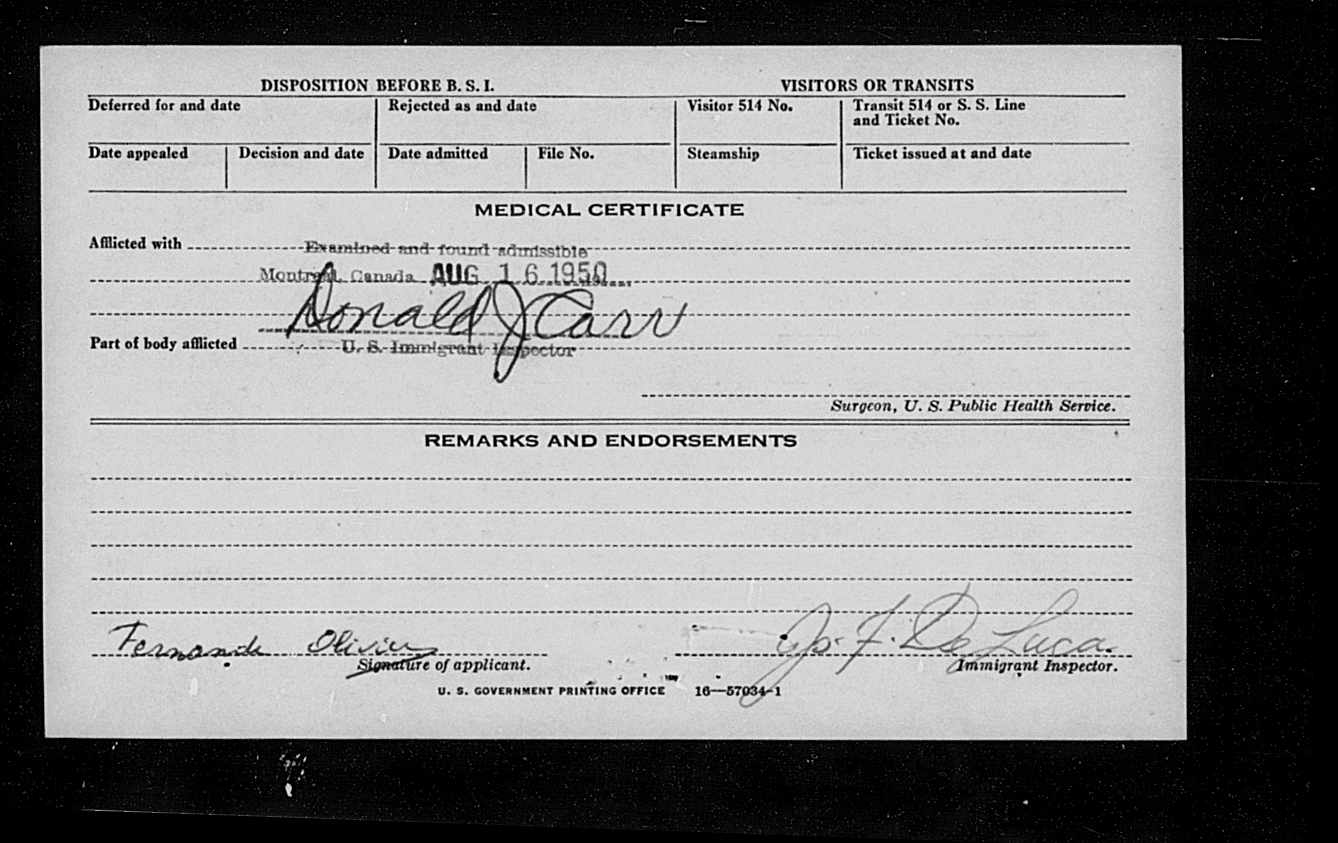 DISPOSITION BEFORE B. S. I. VISITORS OR TRANSITS
Deferred for and date Rejected as and date Visitor 514 No. Transit 514 or S. S. Line and Ticket No.
Date appealed Decision and date Date admitted File No. Steamship Ticket issued at and date
MEDICAL CERTIFICATE
Afflicted with Examined and found admissible
Montreal, Canada AUG 16 1950
Donald J Carr
Part of body afflicted U. S. Immigrant Inspector
Surgeon, U. S. Public Health Service.
REMARKS AND ENDORSEMENTS
Fernande Olivier F. De Luca
Signature of applicant. Immigrant Inspector.
U. S. GOVERNMENT PRINTING OFFICE 16—57034-1